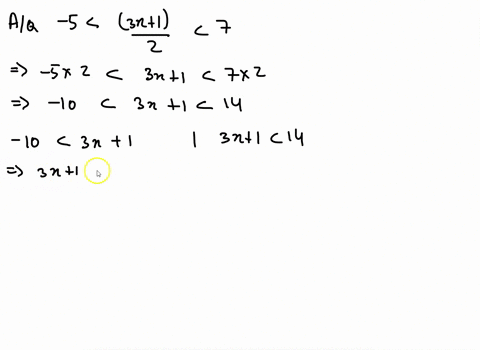 A/Q -5 < (3x+1)/2 < 7
=> -5×2 < 3x+1 < 7×2
=> -10 < 3x+1 < 14
-10 < 3x+1 | 3x+1 < 14
=> 3x+1